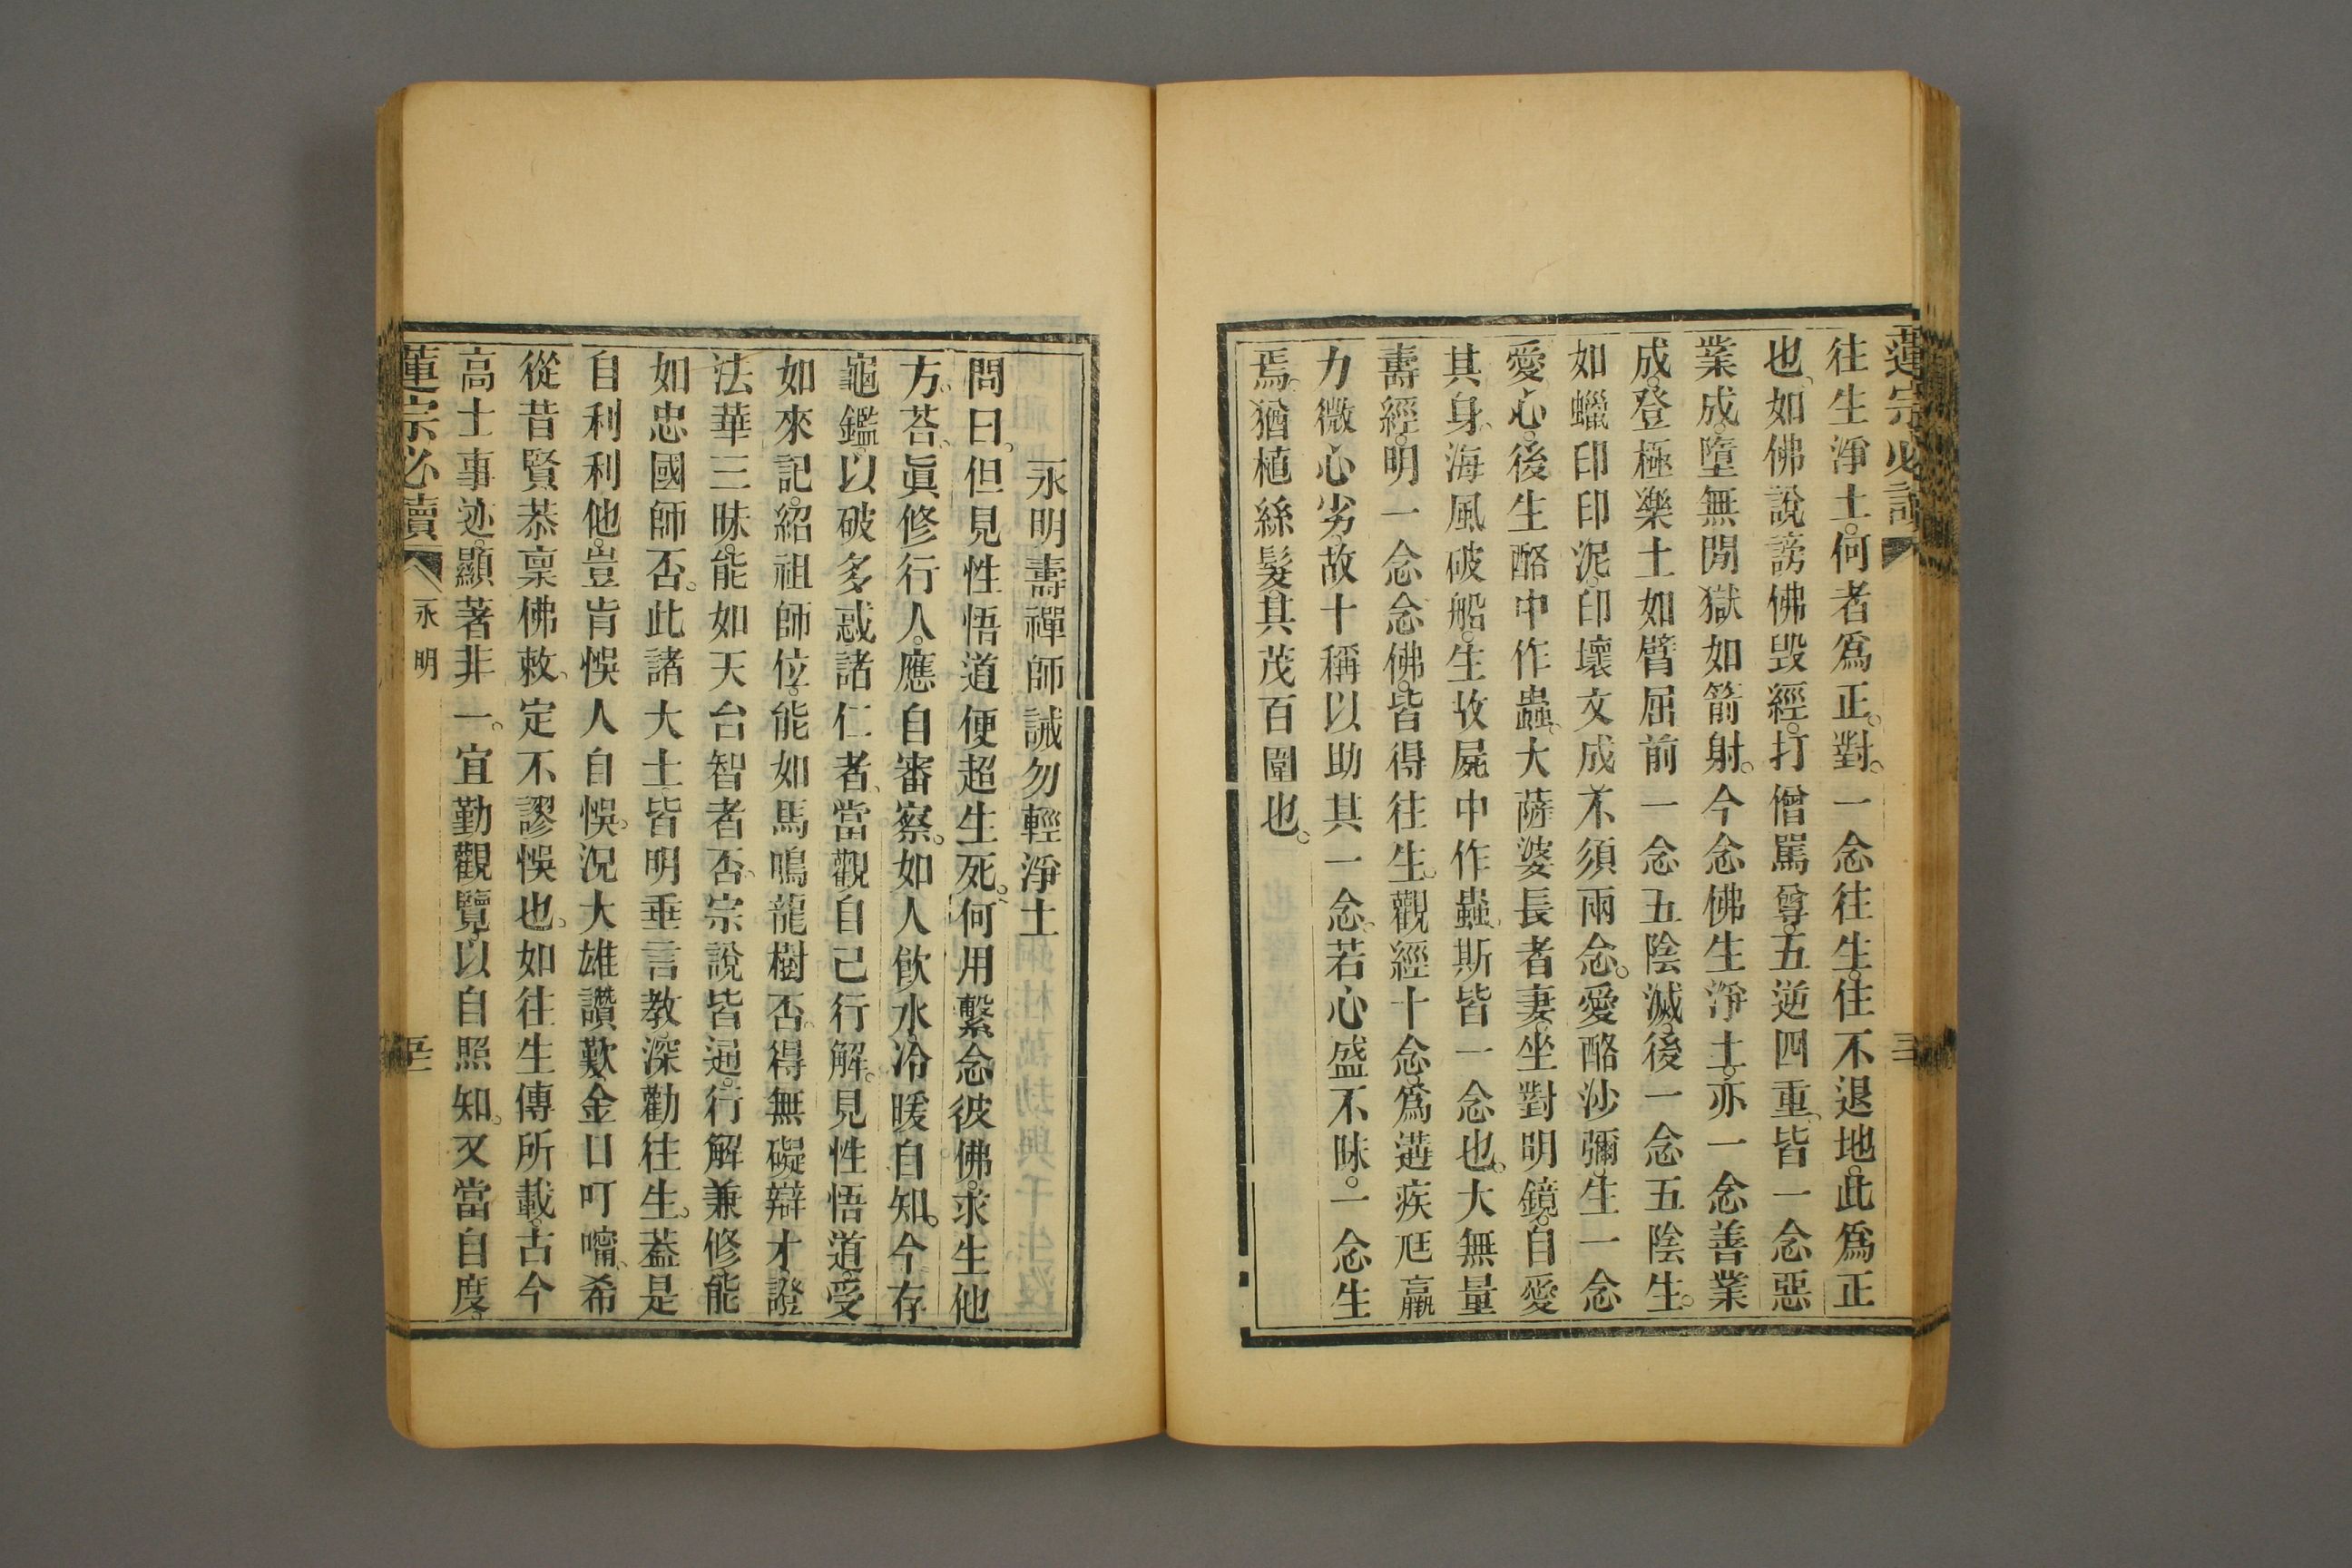 蓮宗必讀
往生淨土。何者爲正。對。一念往生。住不退地。此爲正
也、如佛說謗佛毀經。打僧罵尊。五逆四重、皆一念惡
業成。墮無閒獄如箭射。今念佛生淨土。亦一念善業
成。登極樂土如臂屈前一念五陰滅。後一念五陰生。
如蠟印印泥。印壞文成不須兩念。愛酪沙彌。生一念
愛心。後生酪中作蟲、大薩婆長者妻。坐對明鏡。自愛
其身、海風破船。生故屍中作蟲、斯皆一念也。大無量
壽經。明一念念佛。皆得往生。觀經十念。爲遘疾尫羸
力微心劣。故十稱以助其一念。若心盛不昧。一念生
焉。猶植絲髮其茂百圍也。
三
永明壽禪師誡勿輕淨土
問曰。但見性悟道便超生死。何用繫念彼佛。求生他
方、荅、眞修行人。應自審察。如人飲水。冷暖自知。今存
龜鑑。以破多惑諸仁者、當觀自己行解。見性悟道。受
如來記。紹祖師位。能如馬鳴龍樹否。得無礙辯才。證
法華三昧。能如天台智者否、宗說皆通。行解兼修。能
如忠國師否。此諸大士皆明垂言教。深勸往生。葢是
自利利他。豈肯悞人自悞。況大雄讚歎。金口叮嚀、希
從昔賢恭禀佛敕、定不謬悞也。如往生傳所載。古今
高士事迹。顯著非一。宜勤觀覽。以自照知。又當自度。
蓮宗必讀
永明